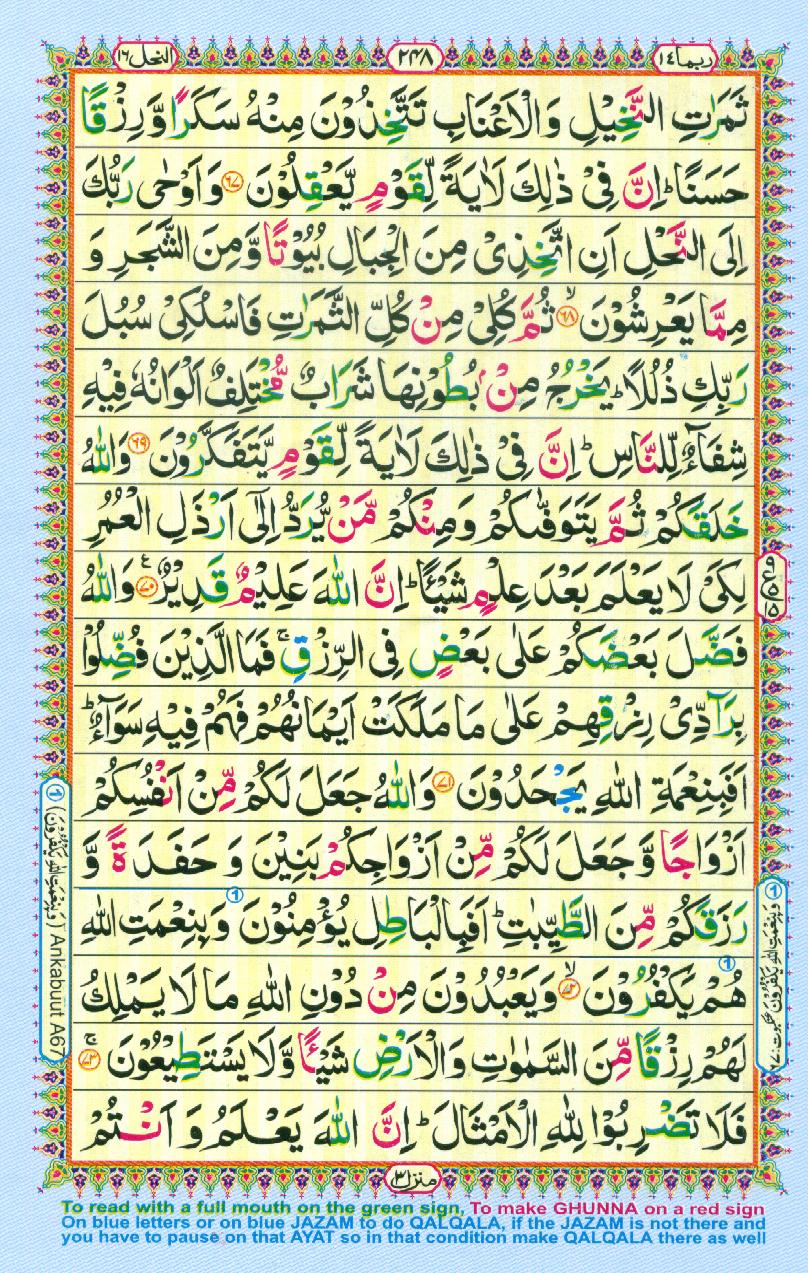 ربما ١٤
٢٤٨
النحل ١٦
ثَمَرٰتِ النَّخِيْلِ وَالْاَعْنَابِ تَتَّخِذُوْنَ مِنْهُ سَكَرًا وَّرِزْقًا
حَسَنًا ؕ اِنَّ فِیْ ذٰلِكَ لَاٰيَةً لِّقَوْمٍ يَّعْقِلُوْنَ ﴿٦٧﴾ وَاَوْحٰى رَبُّكَ
اِلَى النَّحْلِ اَنِ اتَّخِذِیْ مِنَ الْجِبَالِ بُيُوْتًا وَّمِنَ الشَّجَرِ وَ
مِمَّا يَعْرِشُوْنَ ۙ﴿٦٨﴾ ثُمَّ كُلِیْ مِنْ كُلِّ الثَّمَرٰتِ فَاسْلُكِیْ سُبُلَ
رَبِّكِ ذُلُلًا ؕ يَخْرُجُ مِنْۢ بُطُوْنِهَا شَرَابٌ مُّخْتَلِفٌ اَلْوَانُهٗ فِيْهِ
شِفَآءٌ لِّلنَّاسِ ؕ اِنَّ فِیْ ذٰلِكَ لَاٰيَةً لِّقَوْمٍ يَّتَفَكَّرُوْنَ ﴿٦٩﴾ وَاللّٰهُ
خَلَقَكُمْ ثُمَّ يَتَوَفّٰىكُمْ وَمِنْكُمْ مَّنْ يُّرَدُّ اِلٰٓى اَرْذَلِ الْعُمُرِ
لِكَیْ لَا يَعْلَمَ بَعْدَ عِلْمٍ شَيْـًٔا ؕ اِنَّ اللّٰهَ عَلِيْمٌ قَدِيْرٌ ﴿٧٠﴾ ع وَاللّٰهُ
فَضَّلَ بَعْضَكُمْ عَلٰى بَعْضٍ فِی الرِّزْقِ ۚ فَمَا الَّذِيْنَ فُضِّلُوْا
بِرَآدِّیْ رِزْقِهِمْ عَلٰى مَا مَلَكَتْ اَيْمَانُهُمْ فَهُمْ فِيْهِ سَوَآءٌ ؕ
اَفَبِنِعْمَةِ اللّٰهِ يَجْحَدُوْنَ ﴿٧١﴾ وَاللّٰهُ جَعَلَ لَكُمْ مِّنْ اَنْفُسِكُمْ
اَزْوَاجًا وَّجَعَلَ لَكُمْ مِّنْ اَزْوَاجِكُمْ بَنِيْنَ وَحَفَدَةً وَّ
رَزَقَكُمْ مِّنَ الطَّيِّبٰتِ ؕ اَفَبِالْبَاطِلِ يُؤْمِنُوْنَ وَبِنِعْمَتِ اللّٰهِ
هُمْ يَكْفُرُوْنَ ۙ﴿٧٢﴾ وَيَعْبُدُوْنَ مِنْ دُوْنِ اللّٰهِ مَا لَا يَمْلِكُ
لَهُمْ رِزْقًا مِّنَ السَّمٰوٰتِ وَالْاَرْضِ شَيْـًٔا وَّلَا يَسْتَطِيْعُوْنَ ۚ﴿٧٣﴾
فَلَا تَضْرِبُوْا لِلّٰهِ الْاَمْثَالَ ؕ اِنَّ اللّٰهَ يَعْلَمُ وَاَنْتُمْ
منزل ٣
① (وَبِنِعْمَتِ اللّٰهِ يَكْفُرُوْنَ) Ankabuut A67
① وَبِنِعْمَةِ اللّٰهِ يَكْفُرُوْنَ
To read with a full mouth on the green sign, To make GHUNNA on a red sign
On blue letters or on blue JAZAM to do QALQALA, if the JAZAM is not there and
you have to pause on that AYAT so in that condition make QALQALA there as well